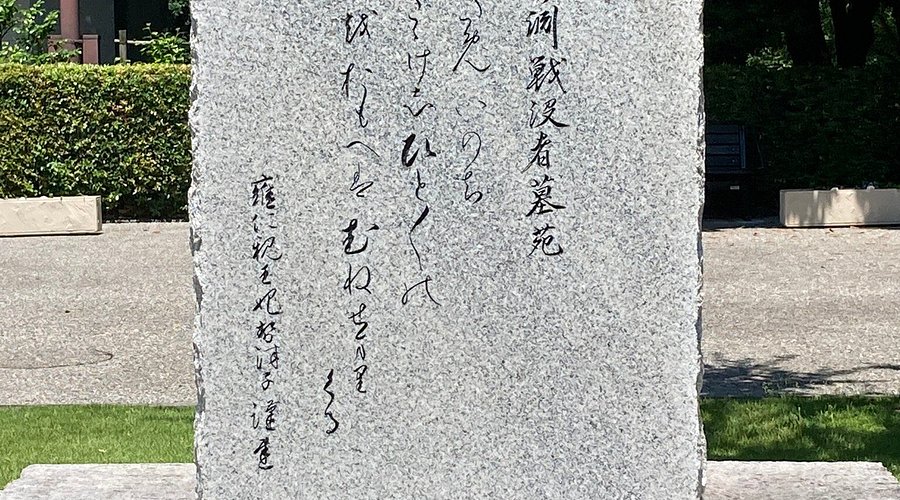 渕戦没者墓苑
めいのち
さゝけしひと〱の
をおもへばむねせまり
くる
雍仁親王妃勢津子 謹書